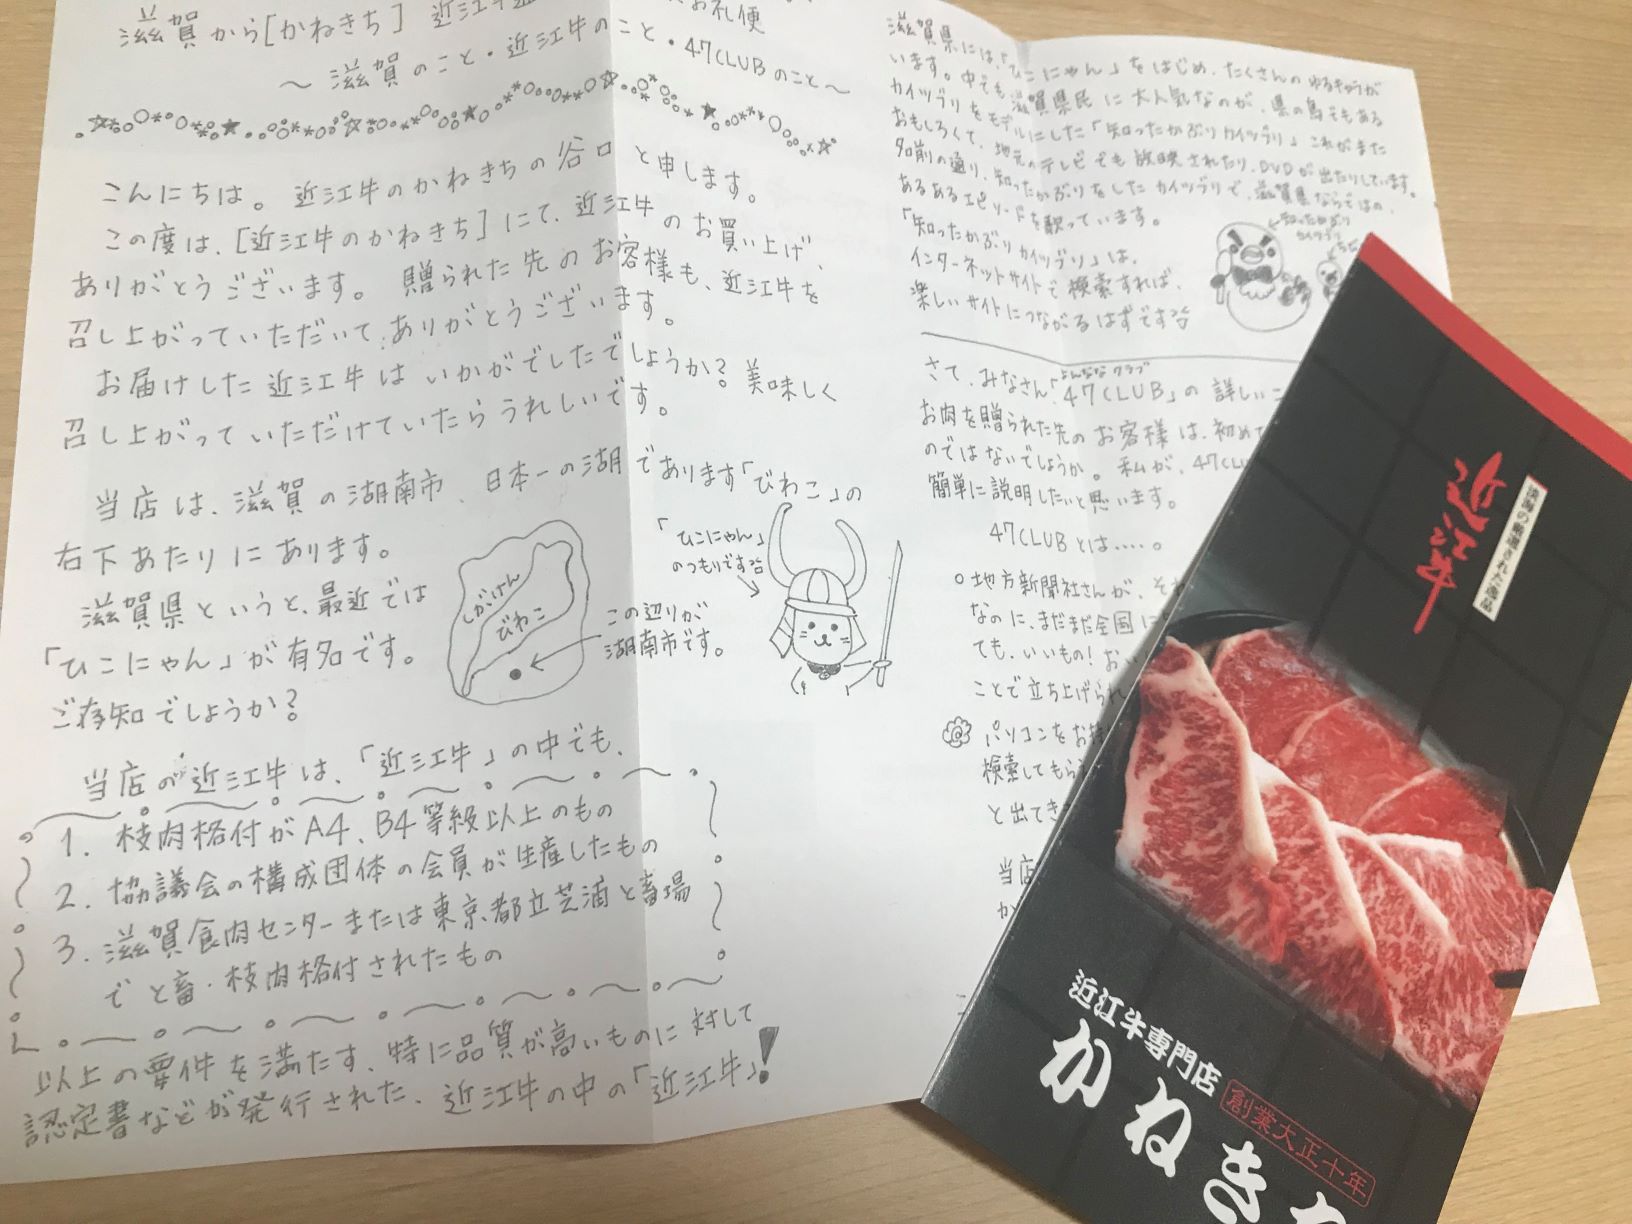 滋賀から[かねきち]近江牛
お礼便
～滋賀のこと・近江牛のこと・47CLUBのこと～
こんにちは。近江牛のかねきちの谷口と申します。
この度は、[近江牛のかねきち]にて、近江牛のお買い上げ、
ありがとうございます。贈られた先のお客様も、近江牛を
召し上がっていただいて、ありがとうございます。
お届けした近江牛はいかがでしたでしょうか？美味しく
召し上がっていただけていたらうれしいです。
当店は、滋賀の湖南市、日本一の湖であります「びわこ」の
右下あたりにあります。
滋賀県というと、最近では
「ひこにゃん」が有名です。
ご存知でしょうか？
しがけん
びわこ
この辺りが
湖南市です。
「ひこにゃん」
のつもりです
当店の近江牛は、「近江牛」の中でも、
1. 枝肉格付がA4、B4等級以上のもの
2. 協議会の構成団体の会員が生産したもの
3. 滋賀食肉センターまたは東京都立芝浦と畜場
でと畜・枝肉格付されたもの
以上の要件を満たす、特に品質が高いものに対して
認定書などが発行された、近江牛の中の「近江牛」！
滋賀県には、「ひこにゃん」をはじめ、たくさんのゆるキャラが
います。中でも、滋賀県民に大人気なのが、県の鳥でもある
カイツブリをモデルにした「知ったかぶりカイツブリ」これがまた
おもしろくて、地元のテレビでも放映されたり、DVDが出たりしています。
名前の通り、知ったかぶりをしたカイツブリで、滋賀県ならではの、
あるあるエピソードを歌っています。
「知ったかぶりカイツブリ」は、
インターネットサイトで検索すれば、
楽しいサイトにつながるはずです
知ったかぶり
カイツブリ
さて、みなさん、「47CLUB」の詳しい
よんななクラブ
お肉を贈られた先のお客様は、初めて
のではないでしょうか。私が、47CLU
簡単に説明したいと思います。
47CLUBとは‥‥。
○地方新聞社さんが、それ
なのに、まだまだ全国に
ても、いいもの！おい
ことで立ち上げられ
パソコンをお持
検索してもら
と出てき
当店
か
近江牛
淡海の厳選された逸品
近江牛専門店
創業大正十年
かねき